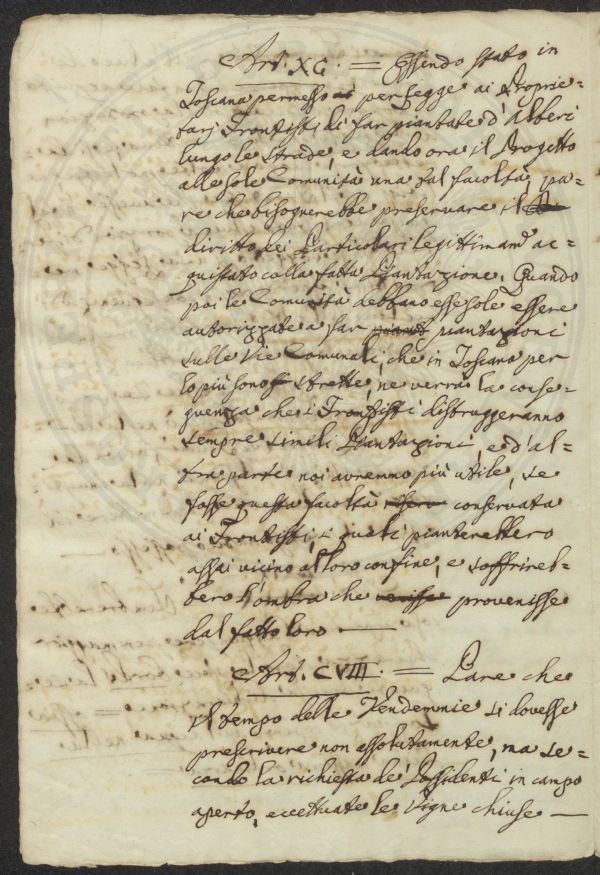 Art. XC. = Essendo stato in
Toscana permesso ai per Legge ai Proprie=
tarj Frontisti di far piantate d'alberi
lungo le strade, e dando ora il Progetto
alle sole Comunità una tal facoltà, pa=
re che bisognerebbe preservare il
diritto dei Particolari legittimam.e ac=
quistato colla fatta Piantazione. Quando
poi le Comunità debbano esse sole essere
autorizzate a far piantazioni
sulle Vie Comunali, che in Toscana per
lo più sono strette, ne verrà la conse=
guenza che i Frontisti distruggeranno
sempre simili Piantazioni, e d'al=
tra parte noi avremmo più utile, se
fosse questa facoltà conservata
ai Frontisti, i quali pianterebbero
assai vicino al loro confine, e soffrireb=
bero l'ombra che venisse provenisse
dal fatto loro —
Art. CVIII. = Pare che
il tempo delle Vendemmie si dovesse
prescrivere non assolutamente, ma se=
condo la richiesta de' Possidenti in campo
aperto, eccettuate le vigne chiuse —